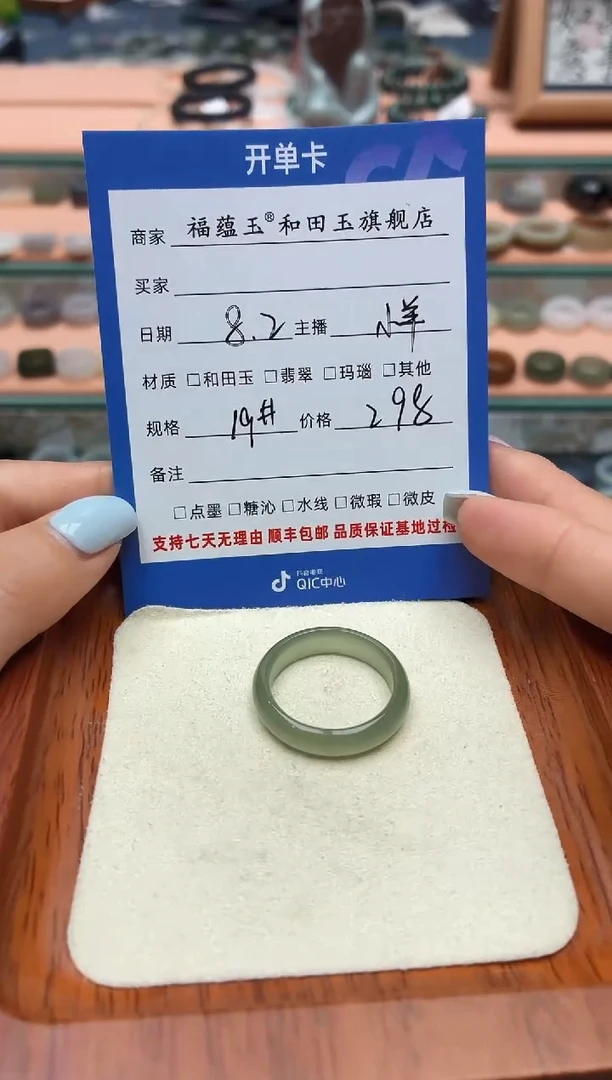 开单卡
商家 福蕴玉®和田玉旗舰店
买家
日期 8.2 主播 小羊
材质 □和田玉 □翡翠 □玛瑙 □其他
规格 19# 价格 298
备注
□点墨 □糖沁 □水线 □微瑕 □微皮
支持七天无理由 顺丰包邮 品质保证基地过检
抖音电商
QIC中心